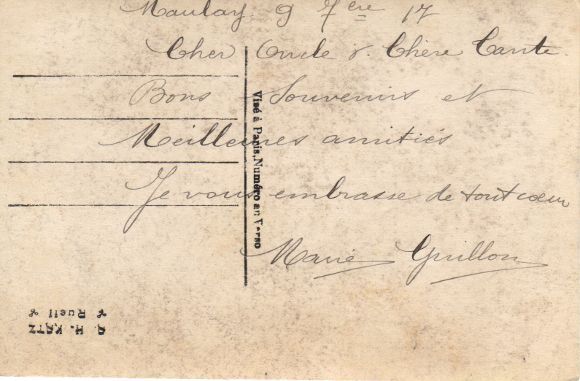 Maulay 9 7bre 17
Cher Oncle & Chère Tante
Bons Souvenirs et
Meilleures amitiés
Je vous embrasse de tout cœur
Marie Guillon
Visé à Paris, Numéro au Verso
G. H. KATZ
Rueil